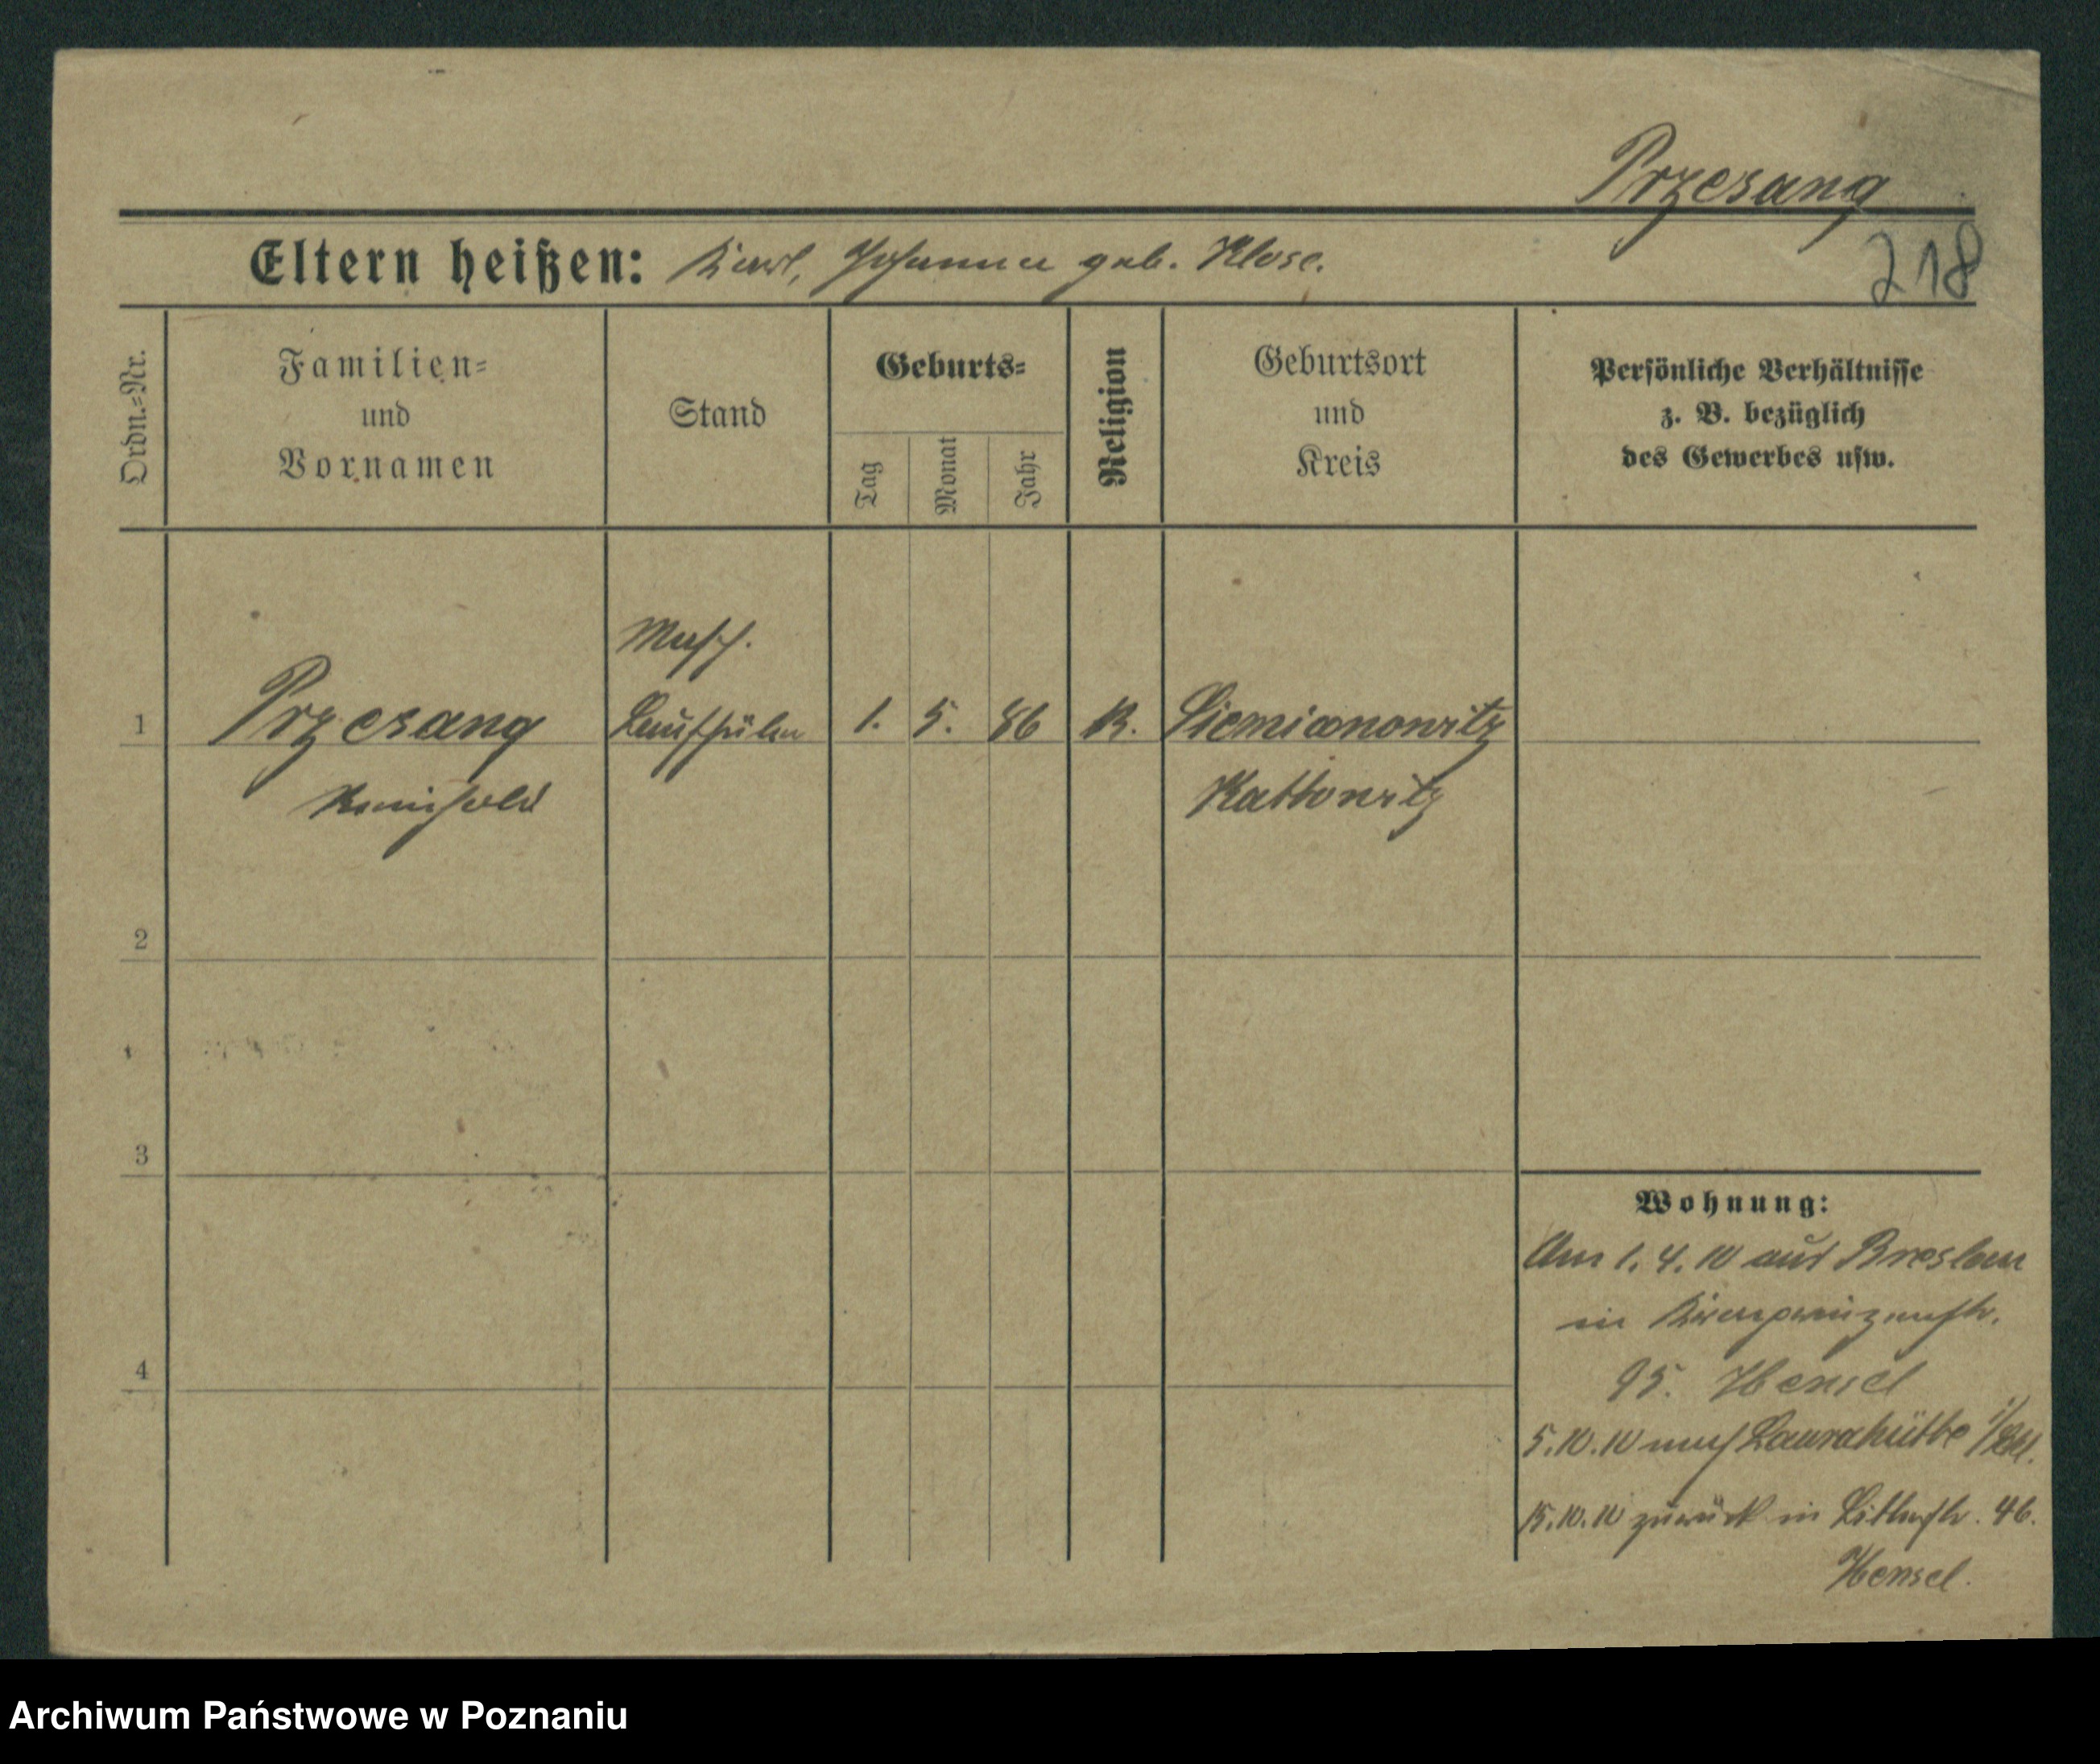 Przesang
218
Eltern heißen: Karl, Johanna geb. Klose.
Ordn.-Nr.
Familien-
und
Vornamen
Stand
Geburts-
Tag
Monat
Jahr
Religion
Geburtsort
und
Kreis
Persönliche Verhältnisse
z. B. bezüglich
des Gewerbes usw.
Masch.
1 Przesang 1. 5. 86 K. Siemianowitz
Kattowitz
2
3
4
Wohnung:
Am 1. 4. 10 aus Breslau
in Kronprinzenstr.
95. Hensel
5.10.10 nach Laurahütte
15.10.10 zurück in 46.
Hensel.
Archiwum Państwowe w Poznaniu